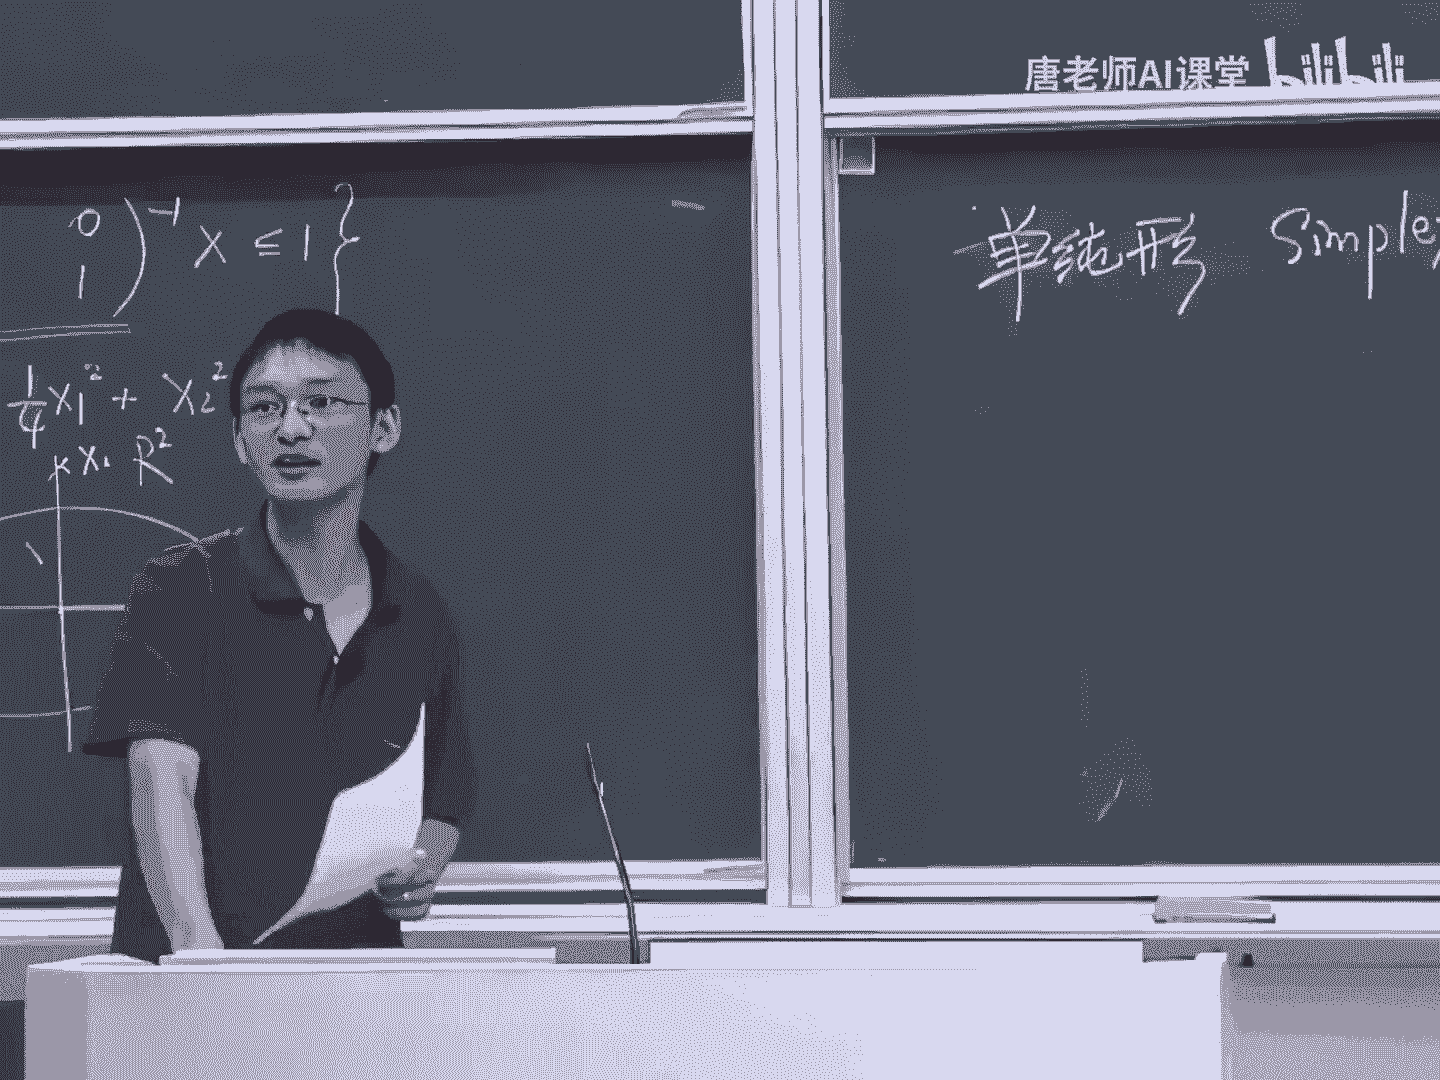 唐老师AI课堂 bilibili
0
1 )⁻¹ X ≤ 1 }
1/4 X₁² + X₂²
R²
单纯形 Simplex